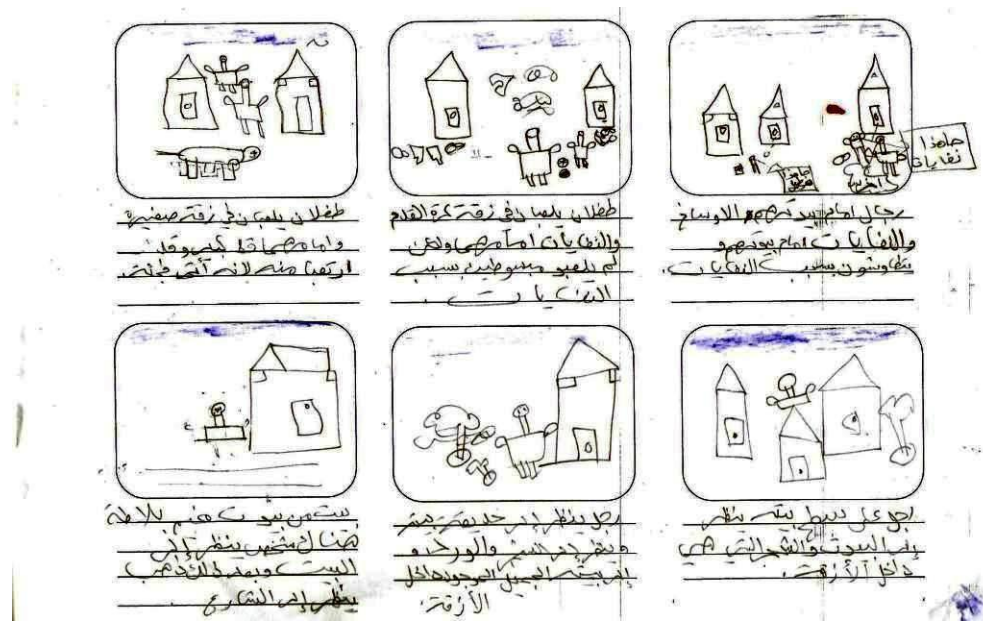 ما هذا
نفايات
رجال امام بيوتهم الاوساخ
والنفايات امام بيوتهم و
يتطاوشون بسبب النفايات.
طفلان يلعبان في زقة كرة القدم
والنفايات أمامهم ولكن
لم يلعبو مبسوطين بسبب
النفايات.
طفلان يلعبان في زقة صغيرة
وامامهما قط كبير وقد
ارتعبا منه لانه أتى فجئة.
رجل على سطح بيته ينظر
إلى البيوت والشجر التي هي
داخل الأزقة.
رجل ينظر إلى حديقة بيته
وينظر إلى الشجر والورد و
إلى بيته الجميل الموجود داخل
الأزقة.
بيت من بيوت
هناك شخص ينظر إلى
البيت وبعد ذلك ذهب
ينظر إلى الشارع.